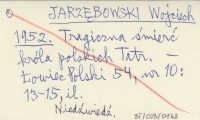 JARZĘBOWSKI Wojciech
1952. Tragiczna śmierć
króla polskich Tatr. –
Łowiec Polski 54, nr 10:
13-15, il.
Niedźwiedź.